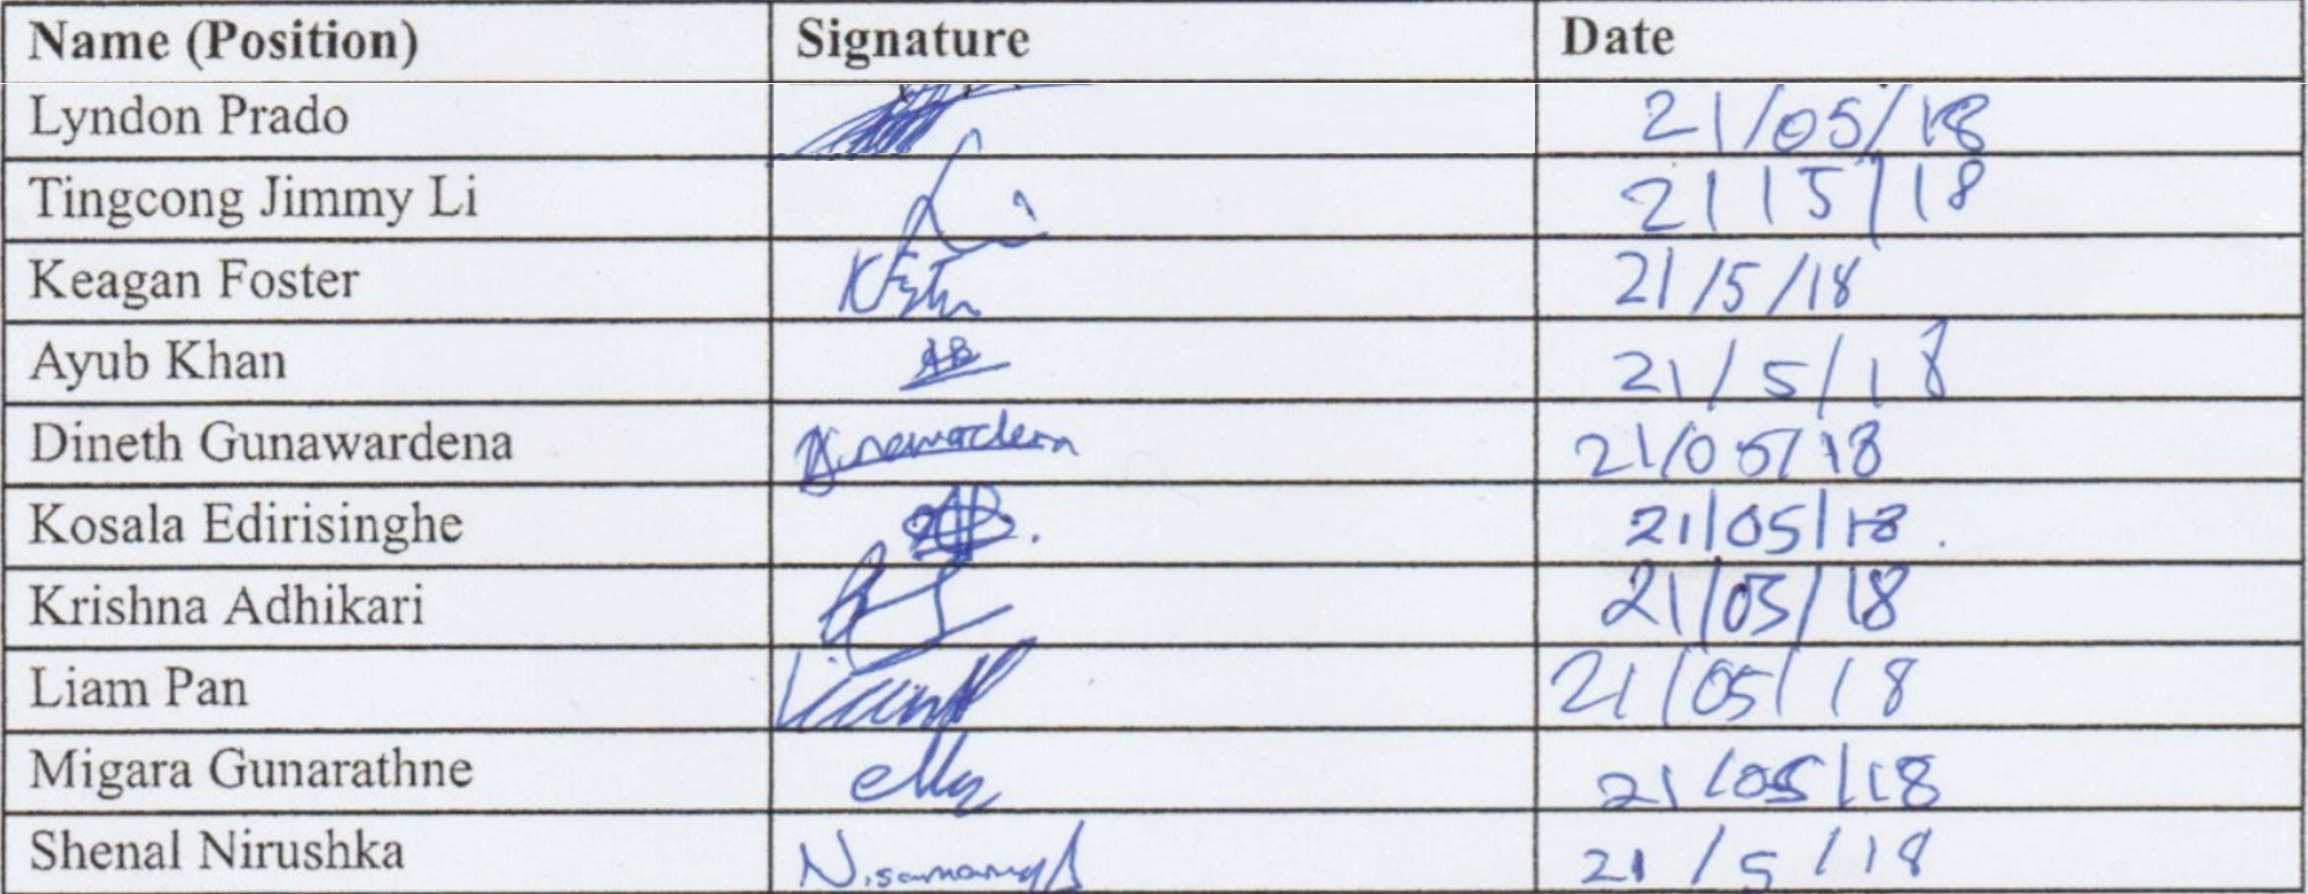 Name (Position) Signature Date
Lyndon Prado 21/05/18
Tingcong Jimmy Li Li 21/5/18
Keagan Foster 21/5/18
Ayub Khan AB 21/5/18
Dineth Gunawardena 21/05/18
Kosala Edirisinghe 21/05/18.
Krishna Adhikari 21/05/18
Liam Pan 21/05/18
Migara Gunarathne 21/05/18
Shenal Nirushka 21/5/18